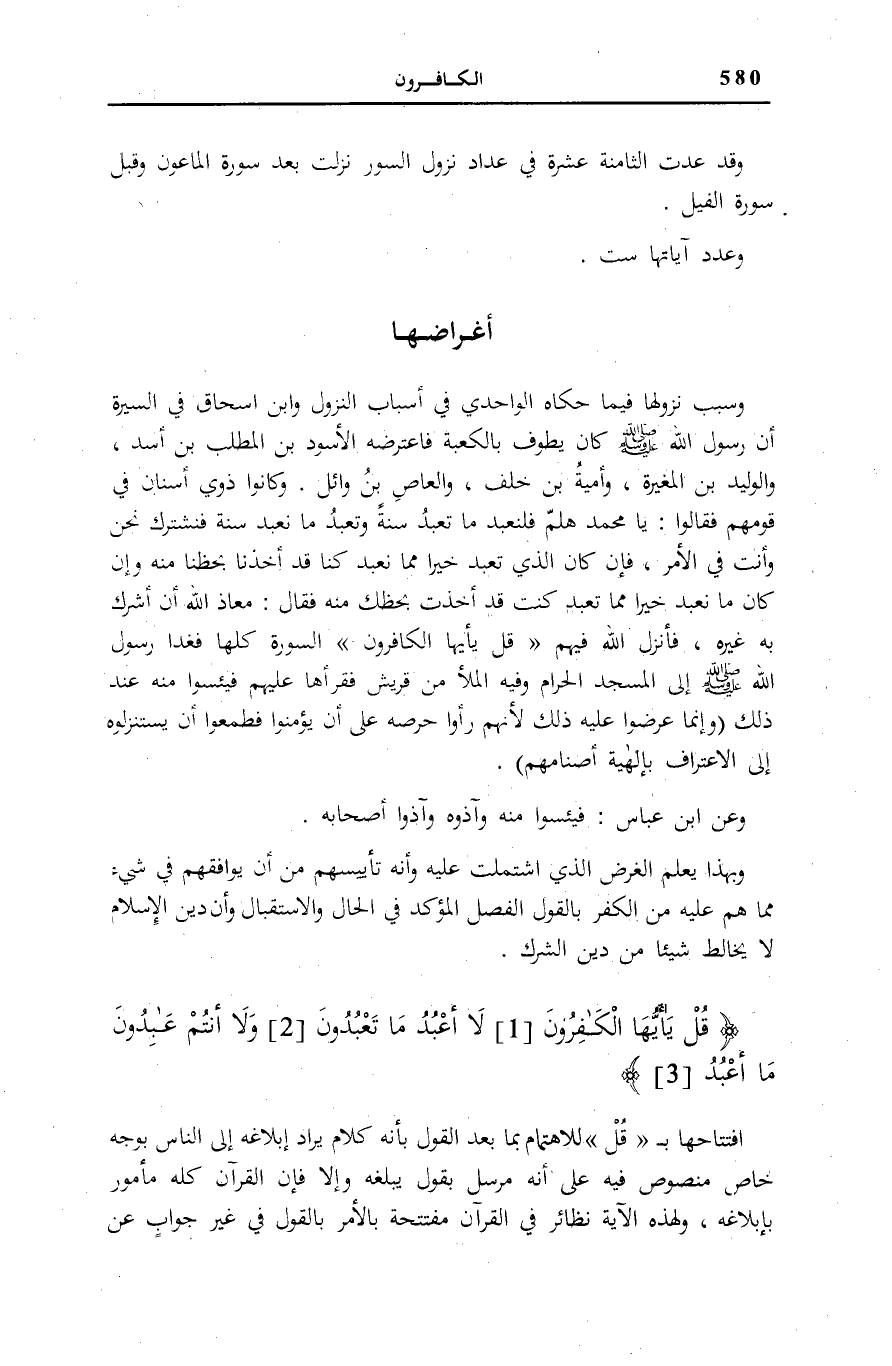 580
الكافرون
وقد عدت الثامنة عشرة في عداد نزول السور نزلت بعد سورة الماعون وقبل
سورة الفيل .
وعدد آياتها ست .
أغراضها
وسبب نزولها فيما حكاه الواحدي في أسباب النزول وابن اسحاق في السيرة
أن رسول الله ﷺ كان يطوف بالكعبة فاعترضه الأسود بن المطلب بن أسد ،
والوليد بن المغيرة ، وأميةُ بن خلف ، والعاصِ بنُ وائل . وكانوا ذوي أسنان في
قومهم فقالوا : يا محمد هلمّ فلنعبد ما تعبدُ سنةً وتعبدُ ما نعبد سنة فنشترك نحن
وأنت في الأمر ، فإن كان الذي تعبد خيرا مما نعبد كنا قد أخذنا بحظنا منه وإن
كان ما نعبد خيرا مما تعبد كنت قد أخذت بحظك منه فقال : معاذ الله أن أشرك
به غيره ، فأنزل الله فيهم « قل يأيها الكافرون » السورة كلها فغدا رسول
الله ﷺ إلى المسجد الحرام وفيه الملأ من قريش فقرأها عليهم فيئسوا منه عند
ذلك (وإنما عرضوا عليه ذلك لأنهم رأوا حرصه على أن يؤمنوا فطمعوا أن يستنزلوه
إلى الاعتراف بإلٰهية أصنامهم) .
وعن ابن عباس : فيئسوا منه وآذوه وآذوا أصحابه .
وبهذا يعلم الغرض الذي اشتملت عليه وأنه تأييسهم من أن يوافقهم في شيء
مما هم عليه من الكفر بالقول الفصل المؤكد في الحال والاستقبال وأن دين الإسلام
لا يخالط شيئا من دين الشرك .
﴿ قُلْ يَٰأَيُّهَا الْكَٰفِرُونَ [1] لَا أَعْبُدُ مَا تَعْبُدُونَ [2] وَلَا أَنتُمْ عَٰبِدُونَ
مَا أَعْبُدُ [3] ﴾
افتتاحها بـ « قُلْ » للاهتمام بما بعد القول بأنه كلام يراد إبلاغه إلى الناس بوجه
خاص منصوص فيه على أنه مرسل بقول يبلغه وإلا فإن القرآن كله مأمور
بإبلاغه ، ولهذه الآية نظائر في القرآن مفتتحة بالأمر بالقول في غير جوابٍ عن